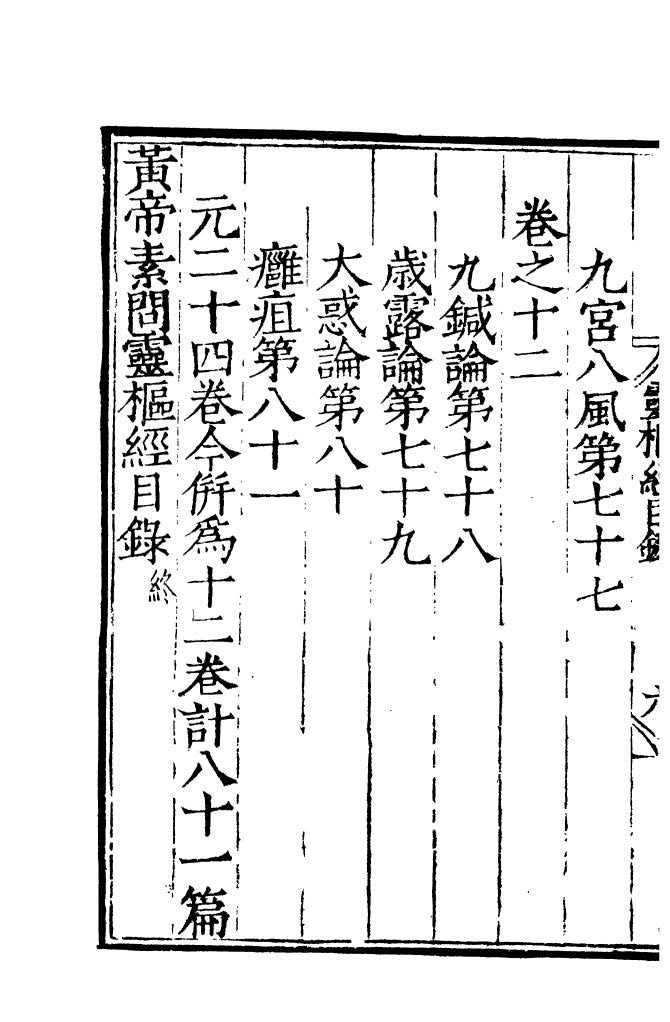 靈樞經目錄 六
九宮八風第七十七
卷之十二
九鍼論第七十八
歲露論第七十九
大惑論第八十
癰疽第八十一
元二十四卷今併爲十二卷計八十一篇
黃帝素問靈樞經目錄終